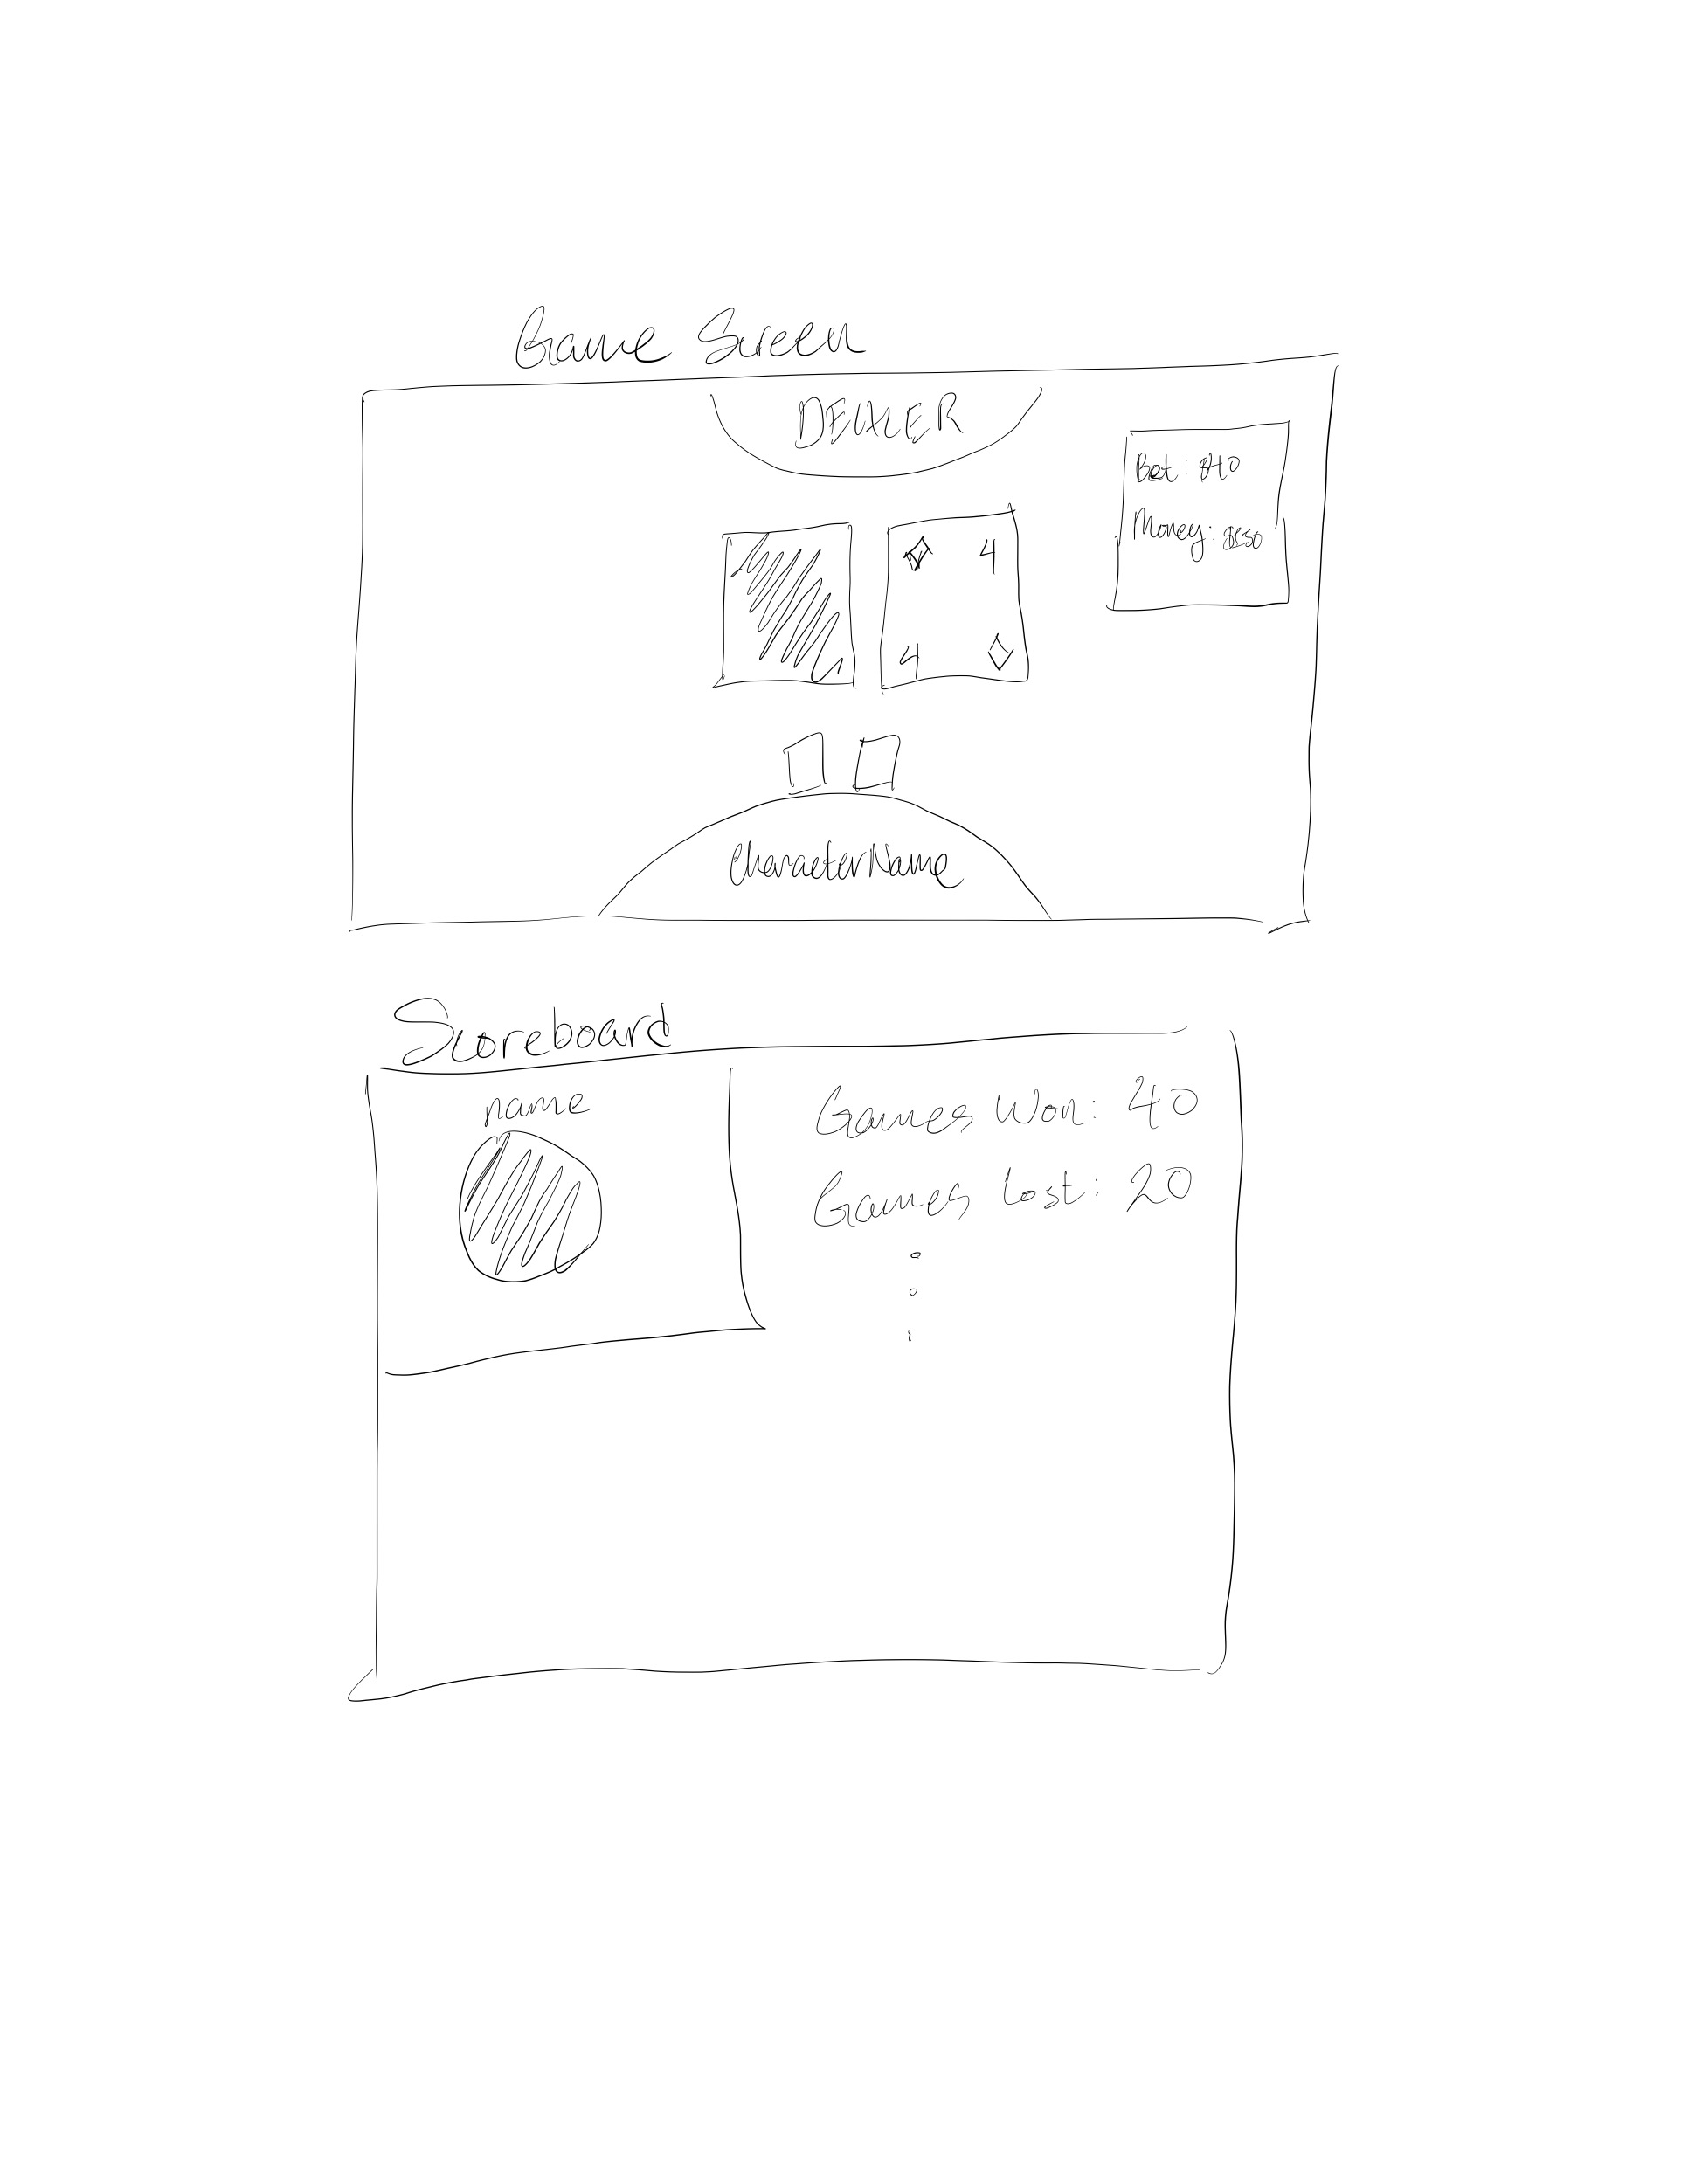 Game Screen
DEALER
Bet: $40
Money: $150
4
4
CharacterName
Scoreboard
name
Games Won: 40
Games Lost: 20